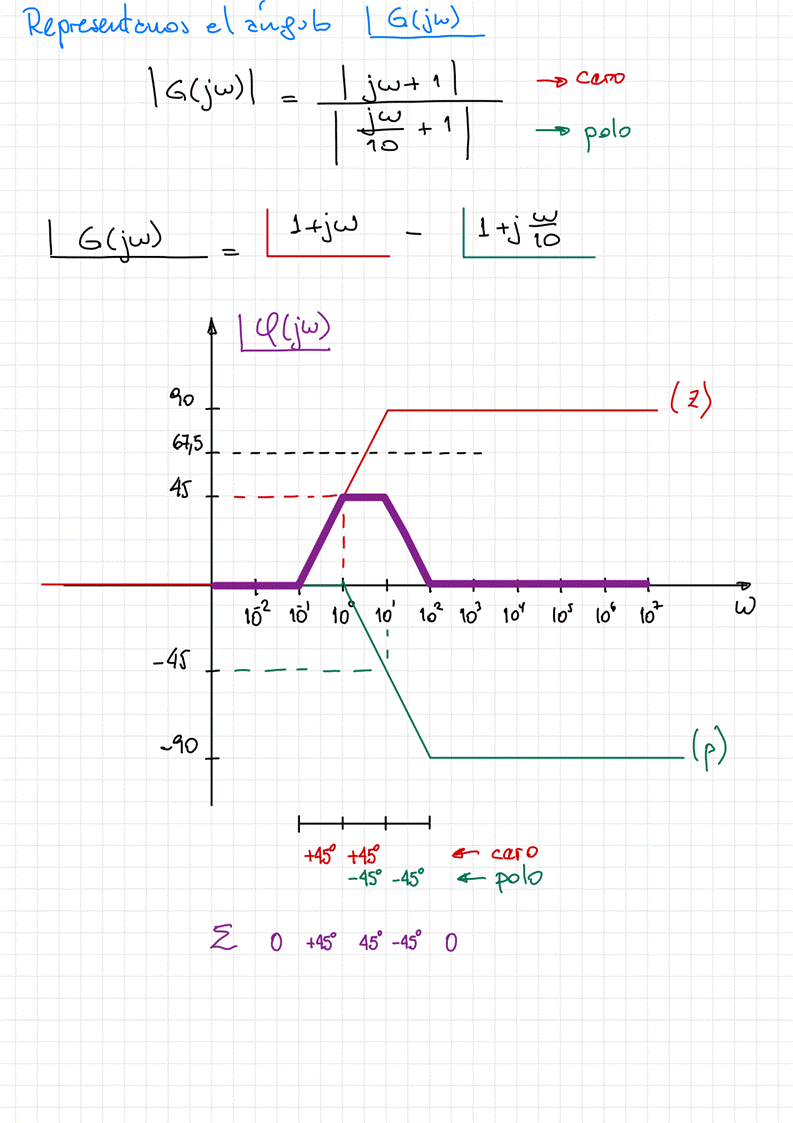 Representamos el ángulo |G(jω)
|G(jω)| = |jω + 1| / |jω/10 + 1|
→ cero
→ polo
|G(jω) = |1+jω - |1+j ω/10
|φ(jω)
90
(z)
67,5
45
10⁻² 10⁻¹ 10⁰ 10¹ 10² 10³ 10⁴ 10⁵ 10⁶ 10⁷ ω
-45
-90
(p)
+45° +45° ← cero
-45° -45° ← polo
Σ 0 +45° 45° -45° 0